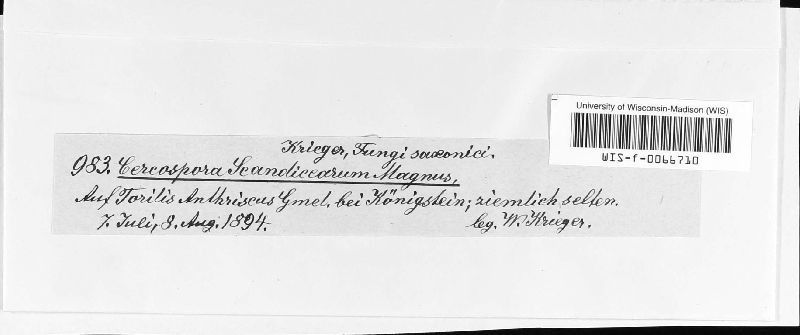 Krieger, Fungi saxonici.
983. Cercospora Scandicearum Magnus,
Auf Torilis Anthriscus Gmel. bei Königstein; ziemlich selten.
7. Juli, 8. Aug. 1894. leg. W. Krieger.
University of Wisconsin-Madison (WIS)
WIS-f-0066710